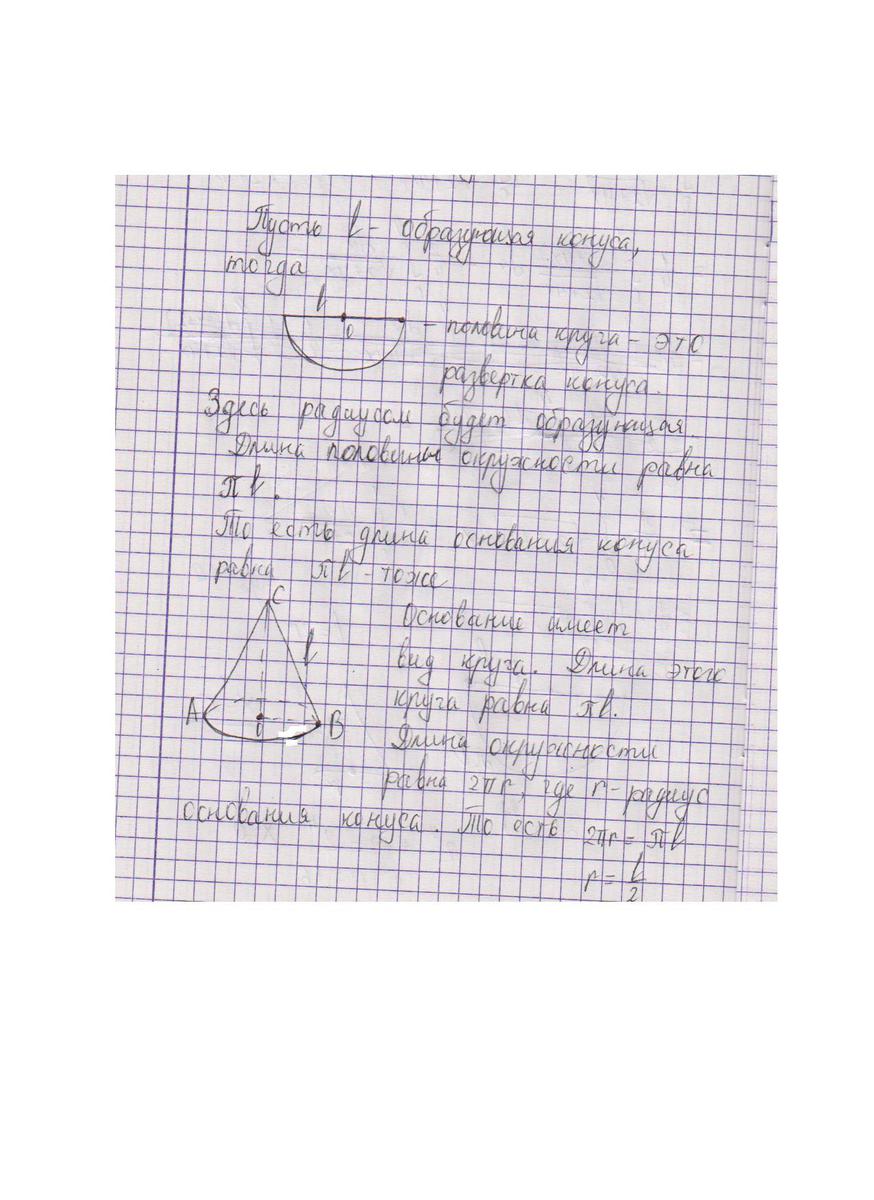 Пусть l - образующая конуса,
тогда
l
O
- половина круга - это
развертка конуса.
Здесь радиусом будет образующая
Длина половины окружности равна
πl.
То есть длина основания конуса
равна πl - тоже
C
l
A
O
B
Основание имеет
вид круга. Длина этого
круга равна πl.
Длина окружности
равна 2πr, где r - радиус
основания конуса. То есть 2πr = πl
r = l/2